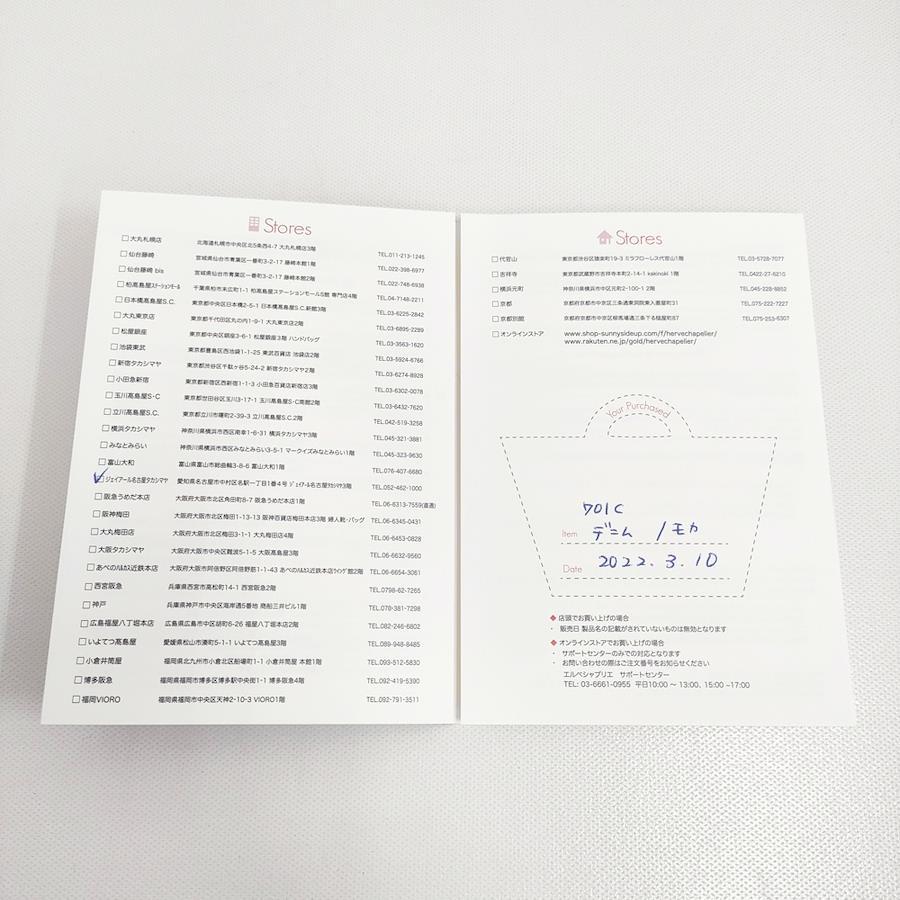 Stores
大丸札幌店 北海道札幌市中央区北5条西4-7 大丸札幌店3階 TEL.011-213-1245
仙台藤崎 宮城県仙台市青葉区一番町3-2-17 藤崎本館1階 TEL.022-398-6977
仙台藤崎 bis 宮城県仙台市青葉区一番町3-2-17 藤崎本館2階 TEL.022-748-6938
柏高島屋ステーションモール 千葉県柏市末広町1-1 柏高島屋ステーションモールS館 専門店4階 TEL.04-7148-2211
日本橋高島屋S.C. 東京都中央区日本橋2-5-1 日本橋高島屋S.C.新館3階 TEL.03-6225-2842
大丸東京店 東京都千代田区丸の内1-9-1 大丸東京店2階 TEL.03-6895-2289
松屋銀座 東京都中央区銀座3-6-1 松屋銀座3階 ハンドバッグ TEL.03-3563-1620
池袋東武 東京都豊島区西池袋1-1-25 東武百貨店 池袋店2階 TEL.03-5924-6766
新宿タカシマヤ 東京都渋谷区千駄ヶ谷5-24-2 新宿タカシマヤ2階 TEL.03-6274-8928
小田急新宿 東京都新宿区西新宿1-1-3 小田急百貨店新宿店3階 TEL.03-6302-0078
玉川高島屋S・C 東京都世田谷区玉川3-17-1 玉川高島屋S・C南館2階 TEL.03-6432-7620
立川高島屋S.C. 東京都立川市曙町2-39-3 立川高島屋S.C.2階 TEL.042-519-3258
横浜タカシマヤ 神奈川県横浜市西区南幸1-6-31 横浜タカシマヤ3階 TEL.045-321-3881
みなとみらい 神奈川県横浜市西区みなとみらい3-5-1 マークイズみなとみらい1階 TEL.045-323-9630
富山大和 富山県富山市総曲輪3-8-6 富山大和1階 TEL.076-407-6680
ジェイアール名古屋タカシマヤ 愛知県名古屋市中村区名駅一丁目1番4号 ジェイアール名古屋タカシマヤ3階 TEL.052-462-1000
阪急うめだ本店 大阪府大阪市北区角田町8-7 阪急うめだ本店1階 TEL.06-6313-7559(直通)
阪神梅田 大阪府大阪市北区梅田1-13-13 阪神百貨店梅田本店3階 婦人靴・バッグ TEL.06-6345-0431
大丸梅田店 大阪府大阪市北区梅田3-1-1 大丸梅田店4階 TEL.06-6453-0828
大阪タカシマヤ 大阪府大阪市中央区難波5-1-5 大阪高島屋3階 TEL.06-6632-9560
あべのハルカス近鉄本店 大阪府大阪市阿倍野区阿倍野筋1-1-43 あべのハルカス近鉄本店ウィング館2階 TEL.06-6654-3061
西宮阪急 兵庫県西宮市高松町14-1 西宮阪急2階 TEL.0798-62-7265
神戸 兵庫県神戸市中央区海岸通5番地 商船三井ビル1階 TEL.078-381-7298
広島福屋八丁堀本店 広島県広島市中区胡町6-26 福屋八丁堀本店2階 TEL.082-246-6802
いよてつ高島屋 愛媛県松山市湊町5-1-1 いよてつ高島屋3階 TEL.089-948-8485
小倉井筒屋 福岡県北九州市小倉北区船場町1-1 小倉井筒屋 本館1階 TEL.093-512-5830
博多阪急 福岡県福岡市博多区博多駅中央街1-1 博多阪急4階 TEL.092-419-5390
福岡VIORO 福岡県福岡市中央区天神2-10-3 VIORO1階 TEL.092-791-3511
Stores
代官山 東京都渋谷区猿楽町19-3 ミラフローレス代官山1階 TEL.03-5728-7077
吉祥寺 東京都武蔵野市吉祥寺本町2-14-1 kakinoki 1階 TEL.0422-27-6210
横浜元町 神奈川県横浜市中区元町2-100-1 2階 TEL.045-228-8852
京都 京都府京都市中京区三条通東洞院東入菱屋町31 TEL.075-222-7227
京都別館 京都府京都市中京区柳馬場通三条下る槌屋町87 TEL.075-253-6307
オンラインストア www.shop-sunnysideup.com/f/hervechapelier/
www.rakuten.ne.jp/gold/hervechapelier/
Your Purchased
701C
Item デニム /モカ
Date 2022.3.10
◆ 店頭でお買い上げの場合
・ 販売日 製品名の記載がされていないものは無効となります
◆ オンラインストアでお買い上げの場合
・ サポートセンターのみでの対応となります
・ お問い合わせの際はご注文番号をお知らせください
エルベシャプリエ サポートセンター
TEL: 03-6661-0955 平日10:00 ～ 13:00, 15:00 ~17:00